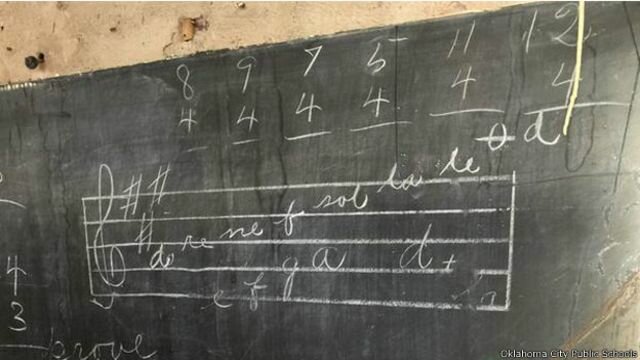 8 9 7 5 11 12
4 4 4 4 4 4
d
do re me f sol la te
e f g a d
4
3
prove
Oklahoma City Public Schools